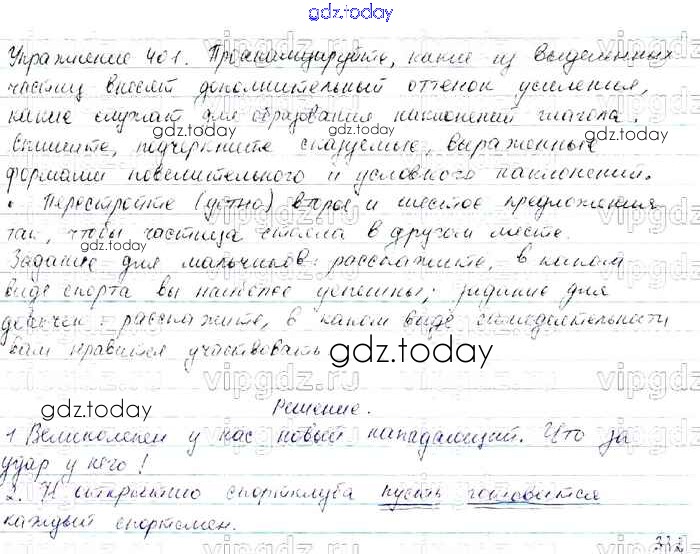 gdz.today
Упражнение 401. Прокомментируйте, какие из выделенных
частиц вносят дополнительный оттенок усиления,
какие служат для образования наклонений глагола.
gdz.today
gdz.today
Спишите, подчеркните сказуемые, выраженные
формами повелительного и условного наклонения.
• Перестройте (устно) второе и шестое предложения
так, чтобы частица стояла в другом месте.
gdz.today
Задание для мальчиков: расскажите, в каком
виде спорта вы наиболее успешны; задание для
девочек: расскажите, в каком виде самодеятельности
вам нравится участвовать
gdz.today
gdz.today
Решение.
1 Великолепен у нас новый нападающий. Что за
удар у него!
gdz.today
2. К открытию спортклуба пусть готовится
каждый спортсмен.
312